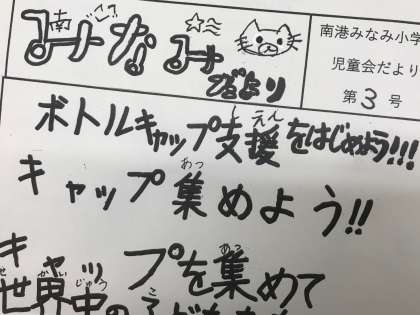 南
みなみ
だより
南港みなみ小学
児童会だより
第3号
ボトルキャップ支援をはじめよう!!!
キャップ集めよう!!
キャップを集めて
世界中の